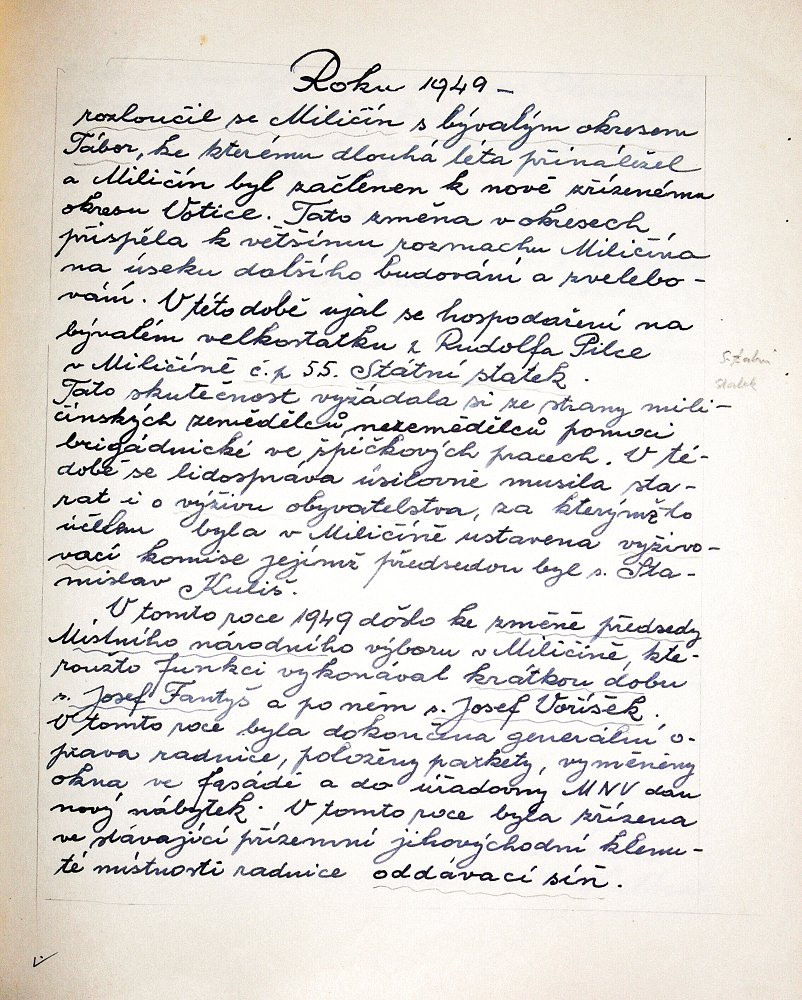 Roku 1949 –
rozloučil se Miličín s bývalým okresem
Tábor, ke kterému dlouhá léta přináležel
a Miličín byl začleněn k nově zřízenému
okresu Votice. Tato změna v okresech
přispěla k většímu rozmachu Miličína
na úseku dalšího budování a zvelebo-
vání. V této době ujal se hospodaření na
bývalém velkostatku z Rudolfa Pilce
v Miličíně č.p 55. Státní statek.
Státní
statek
Tato skutečnost vyžádala si ze strany mili-
čínských zemědělců, nezemědělců pomoci
brigádnické ve špičkových pracech. V té-
době se lidospráva úsilovně musila sta-
rat i o výživu obyvatelstva, za kterýmž to
účelem byla v Miličíně ustavena vyživo-
vací komise jejímž předsedou byl s. Sta-
nislav Kuliš.
V tomto roce 1949 došlo ke změně předsedy
Místního národního výboru v Miličíně, kte-
roužto funkci vykonával krátkou dobu
s. Josef Fantyš a po něm s. Josef Voříšek.
V tomto roce byla dokončena generální o-
prava radnice, položeny parkety, vyměněny
okna ve fasádě a do úřadovny MNV dán
nový nábytek. V tomto roce byla zřízena
ve stávající přízemní jihovýchodní klenu-
té místnosti radnice oddávací síň.